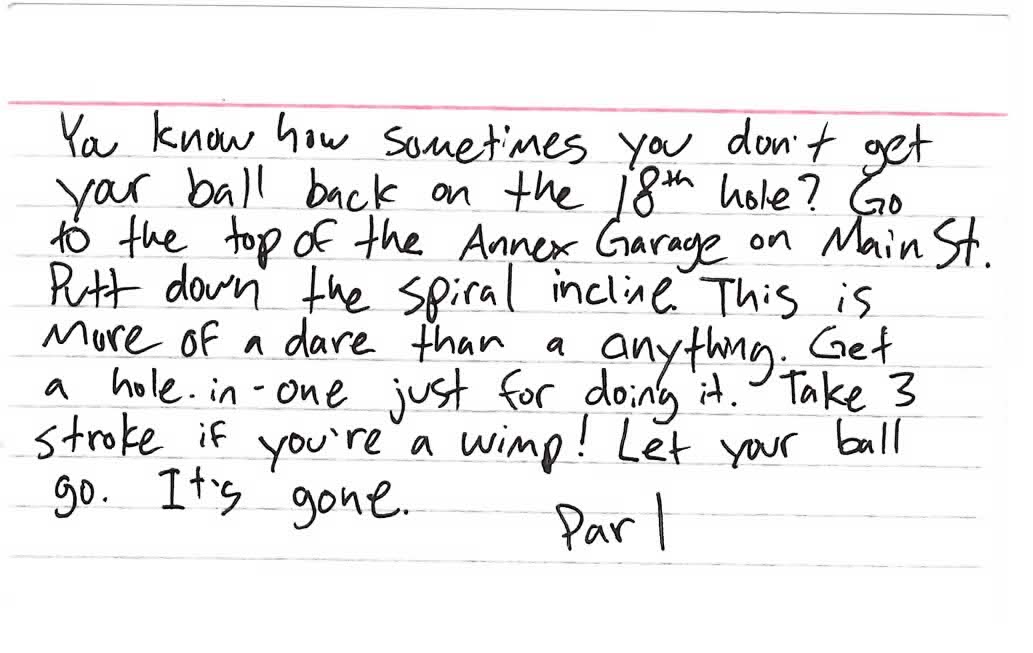 You know how sometimes you don't get
your ball back on the 18th hole? Go
to the top of the Annex Garage on Main St.
Putt down the spiral incline. This is
more of a dare than a anything. Get
a hole-in-one just for doing it. Take 3
stroke if you're a wimp! Let your ball
go. It's gone.
Par 1